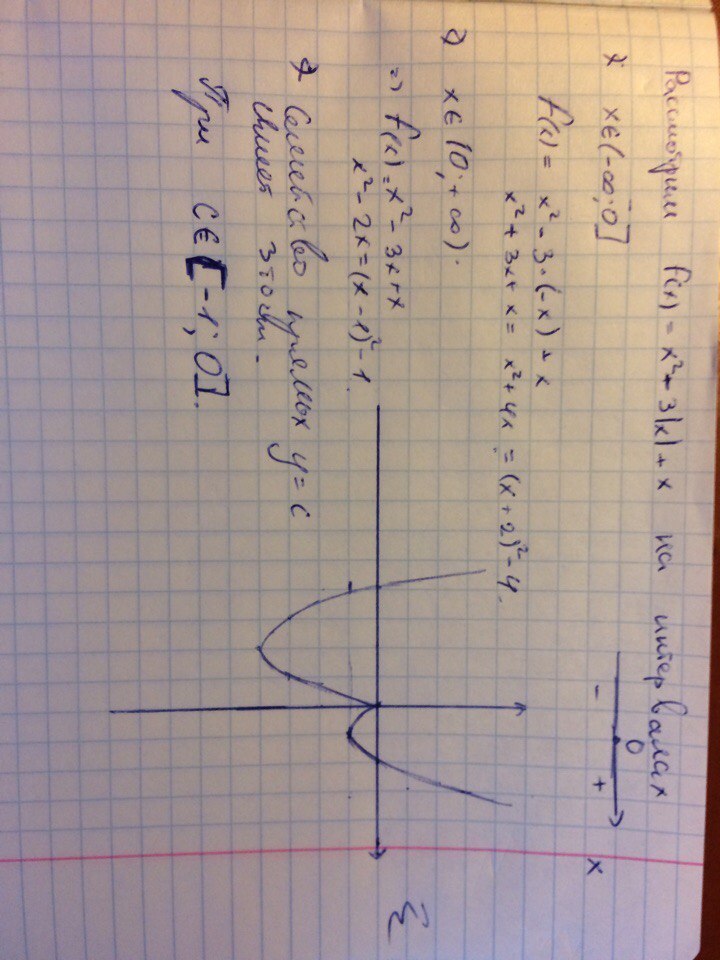 Рассмотрим f(x) = x² - 3|x| + x на интервалах
1. x∈(-∞; 0]
- 0 + x
f(x) = x² - 3·(-x) + x
x² + 3x + x = x² + 4x = (x + 2)² - 4.
2 x∈(0; +∞).
=> f(x) = x² - 3x + x
x² - 2x = (x - 1)² - 1.
Семейство прямых y = c
имеет 3 точки.
При C∈[-1; 0].